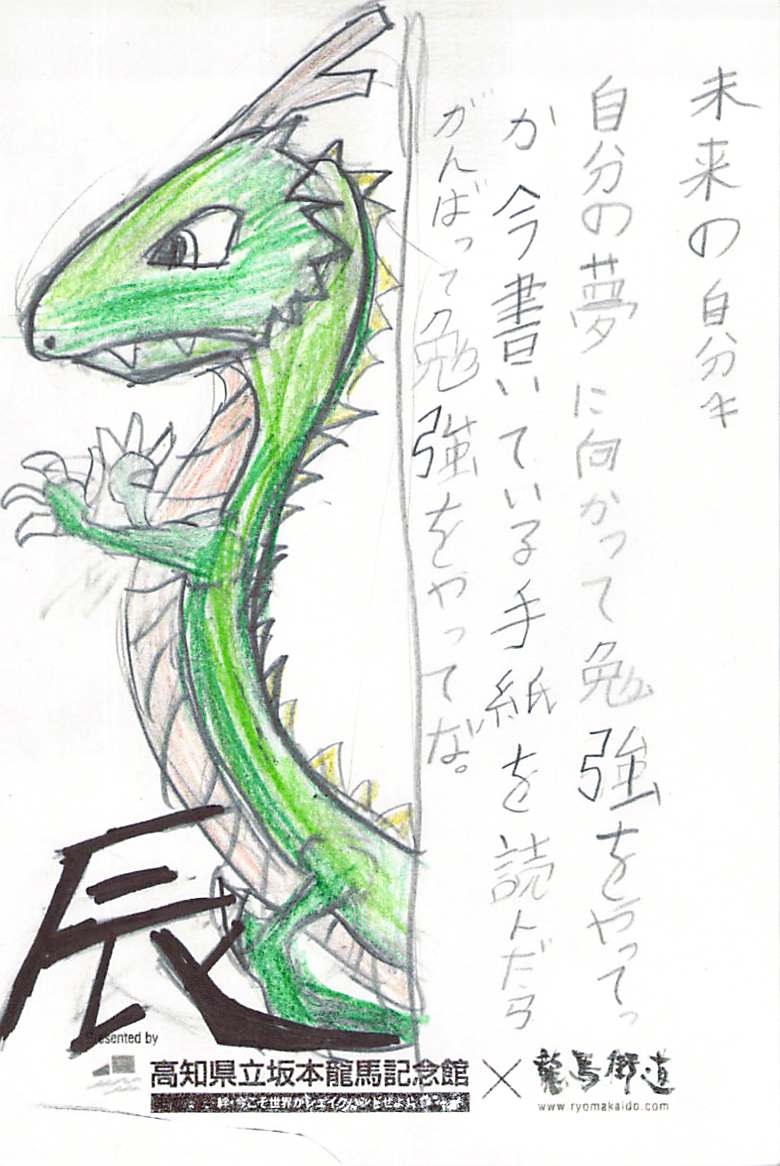 未来の自分キ
自分の夢に向かって勉強をやってっ
か今書いている手紙を読んだら
がんばって勉強をやってな。
辰
Presented by
高知県立坂本龍馬記念館 × 龍馬街道
絆・今こそ世界がシェイクハンドぜよ!
www.ryomakaido.com